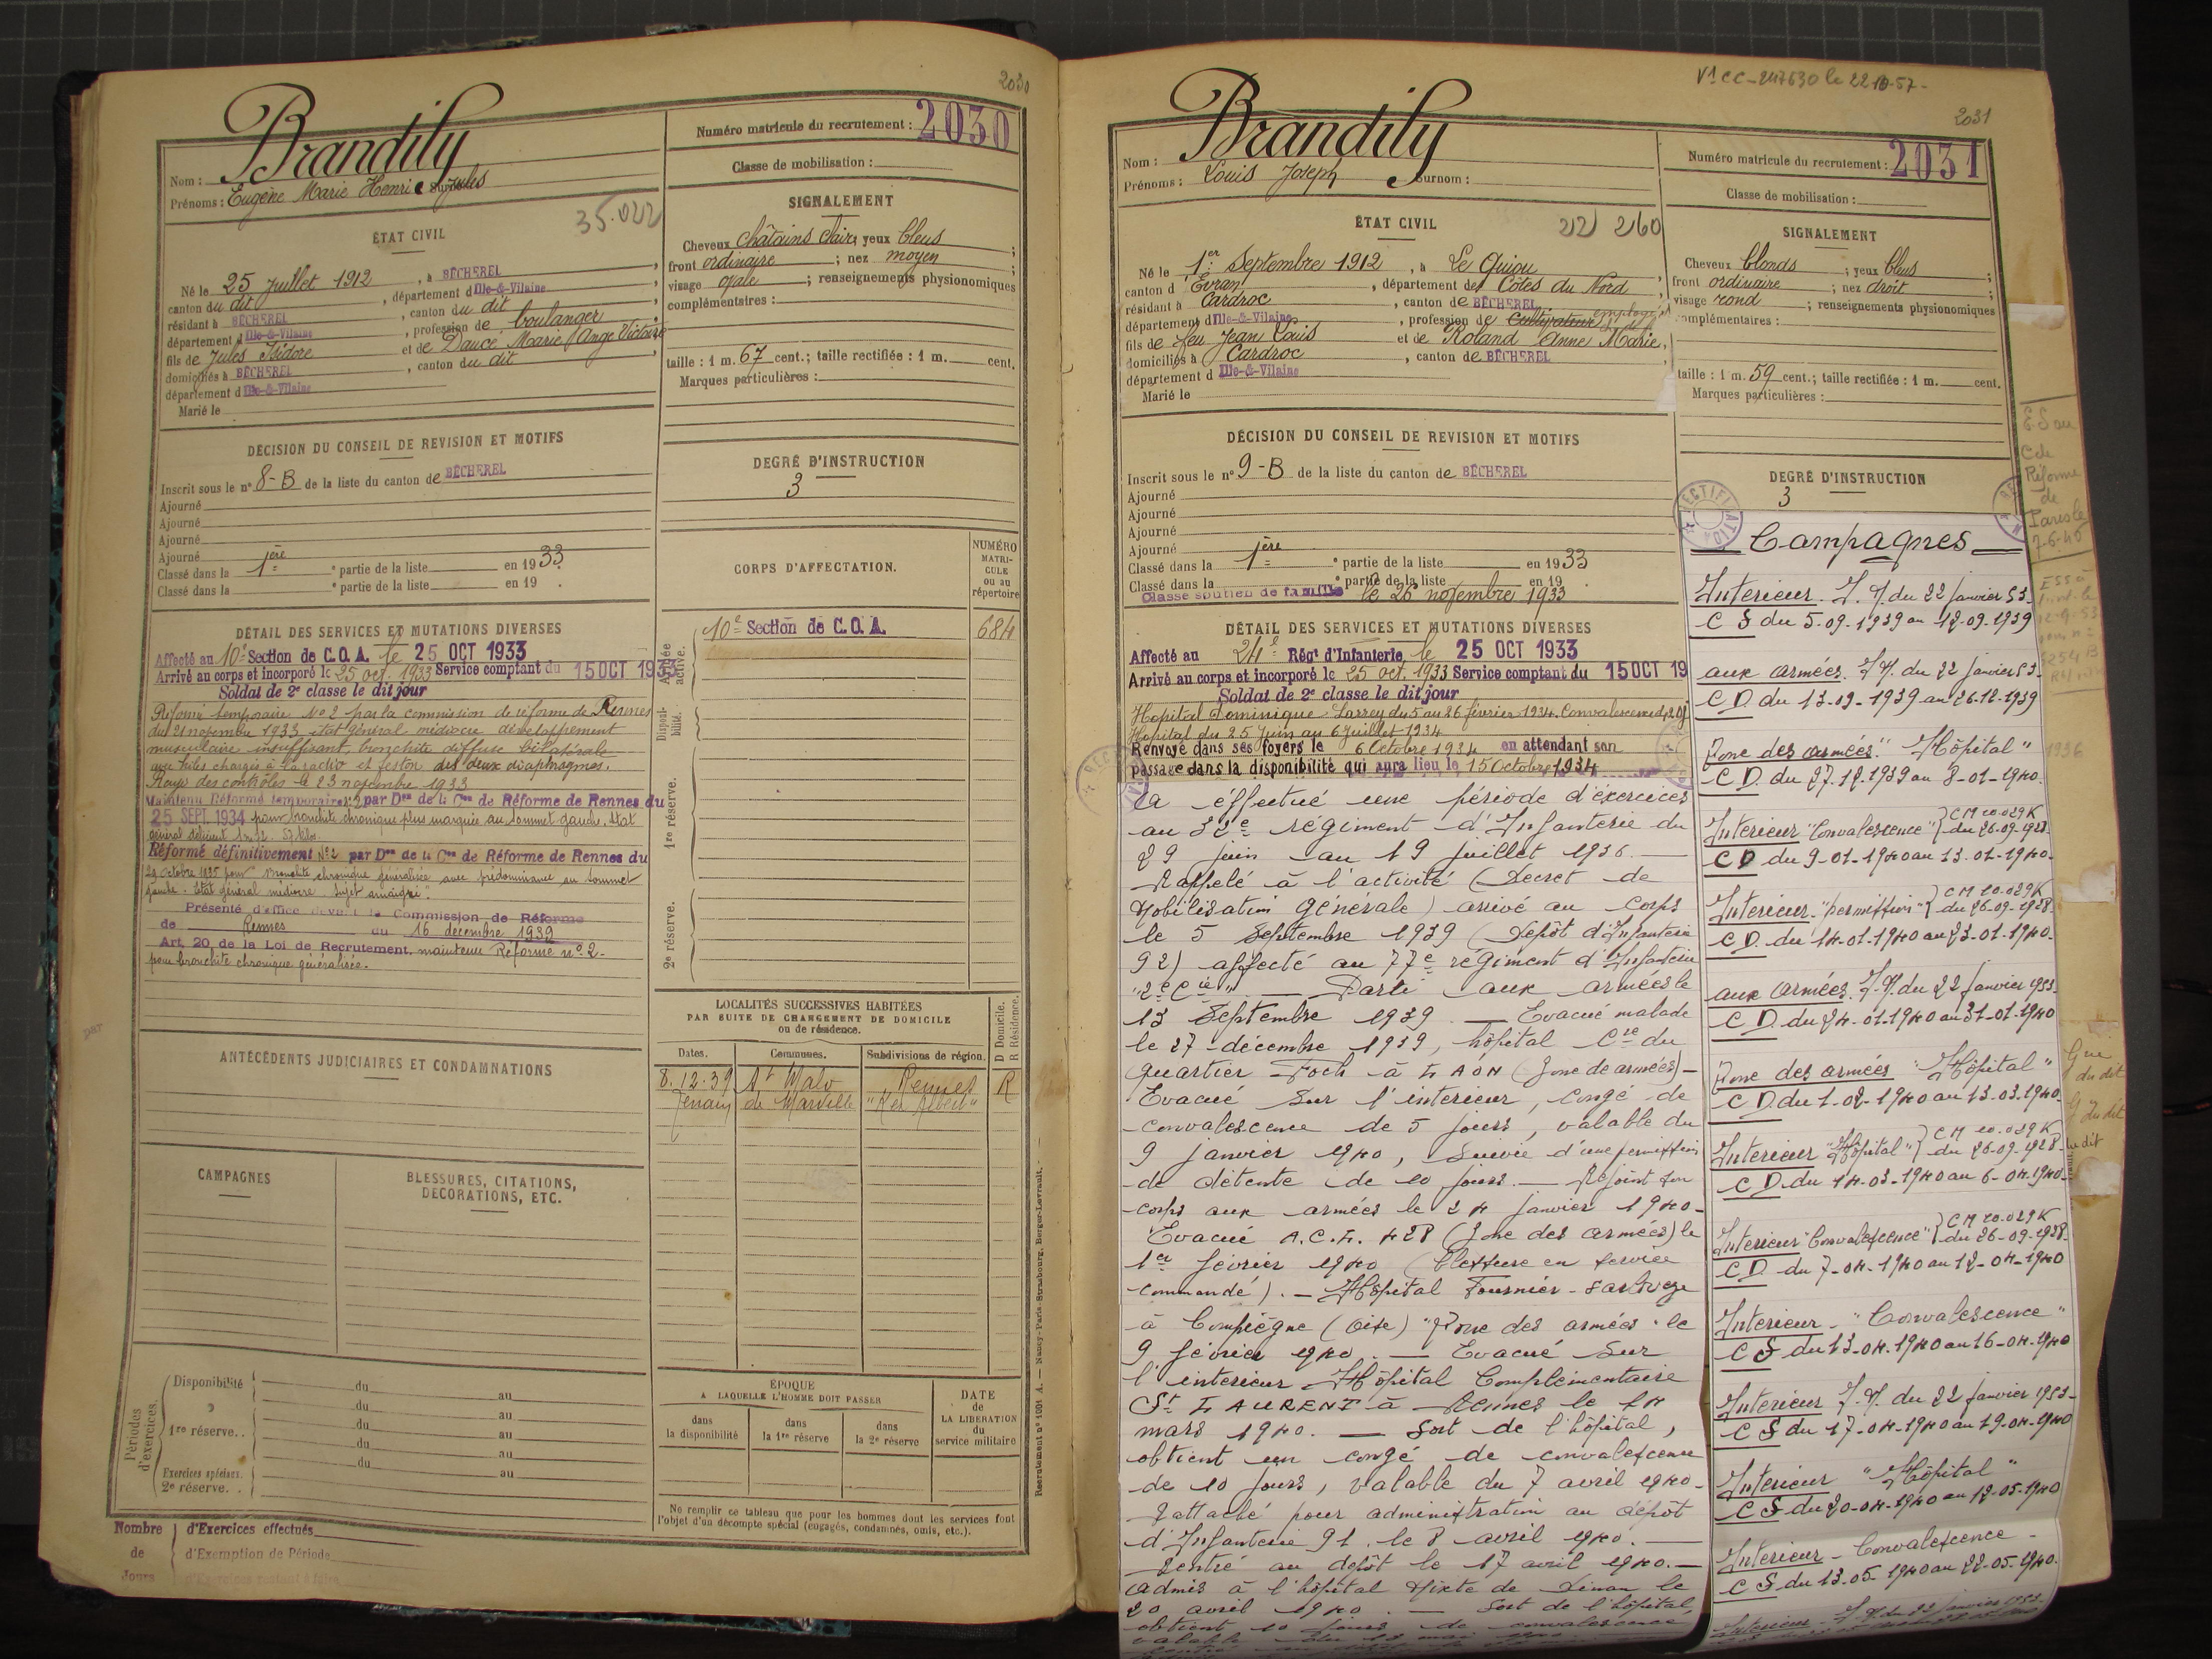 2030
Brandily
Nom :
Prénoms : Eugène Marie Henri Jules
Numéro matricule du recrutement : 2030
Classe de mobilisation :
35.022
ÉTAT CIVIL
Né le 25 Juillet 1912, à BÉCHEREL,
canton du dit, département d'Ille-&-Vilaine
résidant à BÉCHEREL, canton du dit
département d'Ille-&-Vilaine, profession de boulanger
fils de Jules Isidore et de Daucé Marie Ange Victoire
domiciliés à BÉCHEREL, canton du dit
département d'Ille-&-Vilaine
Marié le
SIGNALEMENT
Cheveux châtains clairs yeux bleus ;
front ordinaire ; nez moyen ;
visage ovale ; renseignements physionomiques
complémentaires :
taille : 1 m. 67 cent.; taille rectifiée : 1 m. cent.
Marques particulières :
DÉCISION DU CONSEIL DE REVISION ET MOTIFS
Inscrit sous le n° 8-B de la liste du canton de BÉCHEREL
Ajourné
Ajourné
Ajourné
Ajourné
Classé dans la 1ère partie de la liste en 1933.
Classé dans la partie de la liste en 19 .
DEGRÉ D'INSTRUCTION
3
CORPS D'AFFECTATION.
NUMÉRO MATRICULE ou au répertoire
Armée active.
10e Section de C.O.A. 684
Disponibilité.
1re réserve.
2e réserve.
DÉTAIL DES SERVICES ET MUTATIONS DIVERSES
Affecté au 10e Section de C.O.A. le 25 OCT 1933
Arrivé au corps et incorporé le 25 oct. 1933 Service comptant du 15 OCT 1933
Soldat de 2e classe le dit jour
Réformé temporaire No 2 par la commission de réforme de Rennes
du 21 novembre 1933 état général médiocre développement
musculaire insuffisant, bronchite diffuse bilatérale
avec hiles chargés à la radio et feston des deux diaphragmes.
Rayé des contrôles le 23 novembre 1933
Maintenu Réformé temporaire n°2 par Don de la Con de Réforme de Rennes du
25 SEPT. 1934 pour bronchite chronique plus marquée au sommet gauche. Etat
général déficient
Réformé définitivement N°2 par Don de la Con de Réforme de Rennes du
29 octobre 1935 pour bronchite chronique généralisée avec prédominance au sommet
gauche. Etat général médiocre. Sujet amaigri".
Présenté d'office devant la Commission de Réforme
de Rennes du 16 décembre 1939
Art. 20 de la Loi de Recrutement. maintenu Réformé n° 2.
pour bronchite chronique généralisée.
ANTÉCÉDENTS JUDICIAIRES ET CONDAMNATIONS
CAMPAGNES
BLESSURES, CITATIONS, DÉCORATIONS, ETC.
LOCALITÉS SUCCESSIVES HABITÉES
PAR SUITE DE CHANGEMENT DE DOMICILE
ou de résidence.
Dates. Communes. Subdivisions de région. D Domicile. R Résidence.
8.12.39 St Malo Rennes R
Périodes d'exercices.
Disponibilité du au
du au
1re réserve. . du au
du au
du
Exercices spéciaux. au
2e réserve. .
ÉPOQUE
A LAQUELLE L'HOMME DOIT PASSER
dans la disponibilité
dans la 1re réserve
dans la 2e réserve
DATE de LA LIBÉRATION du service militaire
Ne remplir ce tableau que pour les hommes dont les services font
l'objet d'un décompte spécial (engagés, condamnés, omis, etc.).
Nombre de Jours
d'Exercices effectués
d'Exemption de Période
d'Exercices restant à faire
Recrutement n° 1001 A. — Nancy-Paris-Strasbourg, Berger-Levrault.
2031
Brandily
Nom :
Prénoms : Louis Joseph Surnom :
Numéro matricule du recrutement : 2031
Classe de mobilisation :
ÉTAT CIVIL
Né le 1er Septembre 1912, à Le Quiou
canton d'Evran, département des Côtes du Nord
résidant à Cardroc, canton de BÉCHEREL
département d'Ille-&-Vilaine, profession de Cultivateur
fils de feu Jean Louis et de Roland Anne Marie,
domiciliés à Cardroc, canton de BÉCHEREL
département d Ille-&-Vilaine
Marié le
SIGNALEMENT
Cheveux blonds ; yeux bleus ;
front ordinaire ; nez droit ;
visage rond ; renseignements physionomiques
complémentaires :
taille : 1 m. 59 cent.; taille rectifiée : 1 m. cent.
Marques particulières :
DÉCISION DU CONSEIL DE REVISION ET MOTIFS
Inscrit sous le n° 9-B de la liste du canton de BÉCHEREL
Ajourné
Ajourné
Ajourné
Ajourné
Classé dans la 1ère partie de la liste en 1933
Classé dans la partie de la liste en 19
Classé soutien de famille le 26 novembre 1933
DEGRÉ D'INSTRUCTION
3
DÉTAIL DES SERVICES ET MUTATIONS DIVERSES
Affecté au 24e Régt d'Infanterie le 25 OCT 1933
Arrivé au corps et incorporé le 25 oct. 1933 Service comptant du 15 OCT 19
Soldat de 2e classe le dit jour
Hopital Dominique Larrey du 5 au 26 février 1934. Convalescence
Hopital du 25 Juin au 6 Juillet 1934
Renvoyé dans ses foyers le 6 Octobre 1934 en attendant son
passage dans la disponibilité qui aura lieu le 15 Octobre 1934
a éffectué une période d'éxercices
au 32e régiment d'Infanterie du
29 juin au 19 juillet 1936. —
Rappelé à l'activité (Décret de
Mobilisation Générale) arrivé au corps
le 5 Septembre 1939 (Dépôt d'Infanterie
92) affecté au 77e régiment d'Infanterie
"2e Cie" — Parti aux armées le
13 Septembre 1939 — Evacué malade
le 27 décembre 1939, hôpital Cre du
quartier Foch à LAON (Zone de armées) —
Evacué sur l'interieur, congé de
convalescence de 5 jours, valable du
9 janvier 1940, suivie d'une permission
de détente de 10 jours. — Rejoint son
corps aux armées le 24 janvier 1940 -
Evacué A.C.L. 428 (Zone des armées) le
1er février 1940 (blessure en service
commandé). — Hôpital Fournier-Sarlovèze
à Compiègne (Oise) "Zone des armées" le
9 février 1940. — Evacué sur
l'interieur Hôpital Complémentaire
St LAURENT à Rennes le 14
mars 1940. — Sort de l'hôpital,
obtient un congé de convalescence
de 10 jours, valable du 7 avril 1940 -
Rattaché pour administration au dépôt
d'Infanterie 91. le 8 avril 1940. —
Rentré au dépôt le 17 avril 1940. —
Admis à l'hôpital Mixte de Dinan le
20 avril 1940. — Sort de l'hôpital,
obtient 10 jours de convalescence,
Campagnes
Interieur. J.O. du 22 janvier 53.
C S du 5-09-1939 au 12-09-1939
aux armées. J.O. du 22 janvier 53.
C D. du 13-09-1939 au 26-12-1939
Zone des armées "Hôpital"
C D. du 27.12.1939 au 8-01-1940.
Interieur "Convalescence" } CM 20.029K du 26-09-1928.
C D du 9-01-1940 au 13-01-1940.
Interieur "permission" } CM 20.029K du 26-09-1928.
C D. du 14-01-1940 au 23-01-1940.
aux armées. J.O. du 22 janvier 1953.
C D. du 24-01-1940 au 31-01-1940
Zone des armées "Hôpital"
C D. du 1-02-1940 au 13-03-1940.
Interieur "Hôpital" } CM 20.029K du 26-09-1928
C D. du 14-03-1940 au 6-04-1940
Interieur "Convalescence" } CM 20.029K du 26-09-1928.
C D. du 7-04-1940 au 12-04-1940
Interieur - "Convalescence"
C S du 13-04-1940 au 16-04-1940
Interieur J.O. du 22 janvier 1953-
C S du 17-04-1940 au 19-04-1940
Interieur "Hôpital"
C S du 20-04-1940 au 12-05-1940
Interieur - Convalescence -
C S du 13-05-1940 au 22-05-1940.
Réforme
de